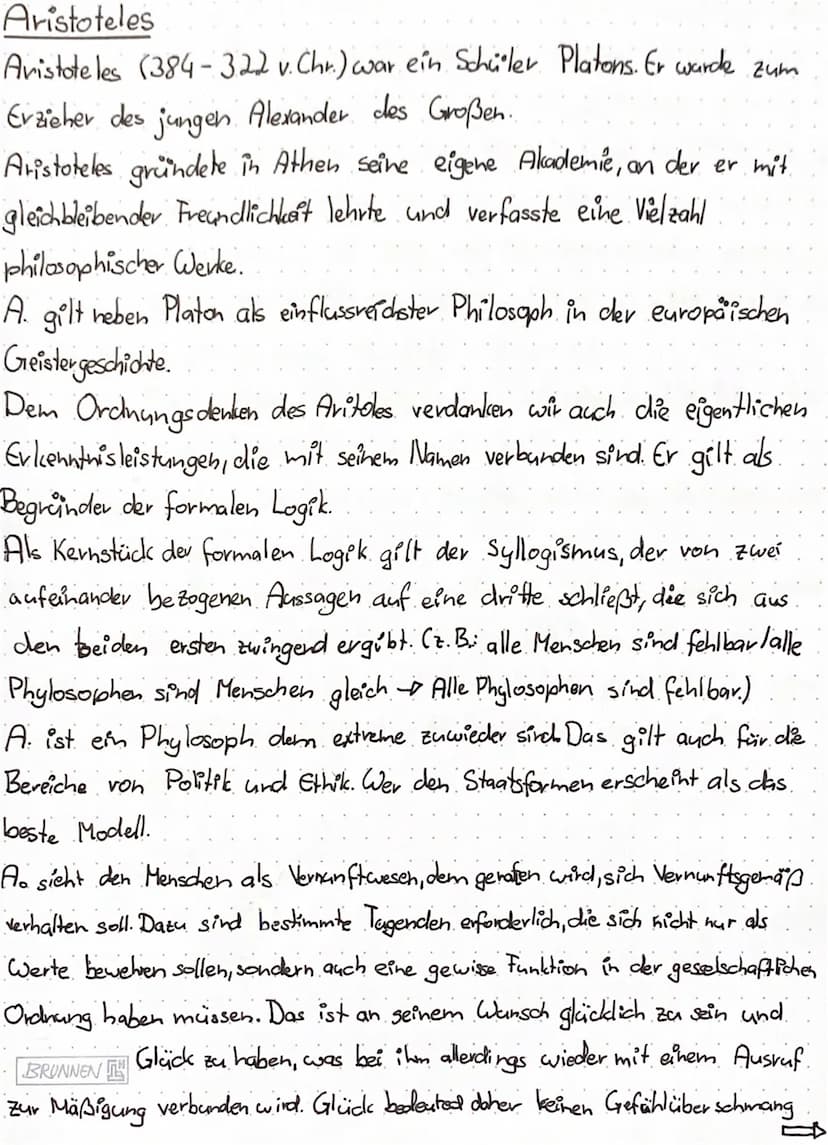 Aristoteles
Aristoteles (384 - 322 v. Chr.) war ein Schüler Platons. Er wurde zum
Erzieher des jungen Alexander des Großen.
Aristoteles gründete in Athen seine eigene Akademie, an der er mit
gleichbleibender Freundlichkeit lehrte und verfasste eine Vielzahl
philosophischer Werke.
A. gilt neben Platon als einflussreichster Philosoph in der europäischen
Geistergeschichte.
Dem Ordnungsdenken des Aritoles verdanken wir auch die eigentlichen
Erkenntnisleistungen, die mit seinem Namen verbunden sind. Er gilt als
Begründer der formalen Logik.
Als Kernstück der formalen Logik gilt der Syllogismus, der von zwei
aufeinander bezogenen Aussagen auf eine dritte schließt, die sich aus
den beiden ersten zwingend ergibt. (z.B.: alle Menschen sind fehlbar/alle
Phylosophen sind Menschen gleich → Alle Phylosophen sind fehlbar.)
A. ist ein Phylosoph dem extreme zuwieder sind. Das gilt auch für die
Bereiche von Politik und Ethik. Wer den Staatsformen erscheint als das
beste Modell.
A. sieht den Menschen als Vernunftwesen, dem geraten wird, sich Vernunftsgemäß
verhalten soll. Dazu sind bestimmte Tugenden erforderlich, die sich nicht nur als
Werte bewehren sollen, sondern auch eine gewisse Funktion in der geselschaftlichen
Ordnung haben müssen. Das ist an seinem Wunsch glücklich zu sein und
BRUNNEN Glück zu haben, was bei ihm allerdings wieder mit einem Ausruf
zur Mäßigung verbunden wird. Glück bedeuted daher keinen Gefühlüberschwang
⇒